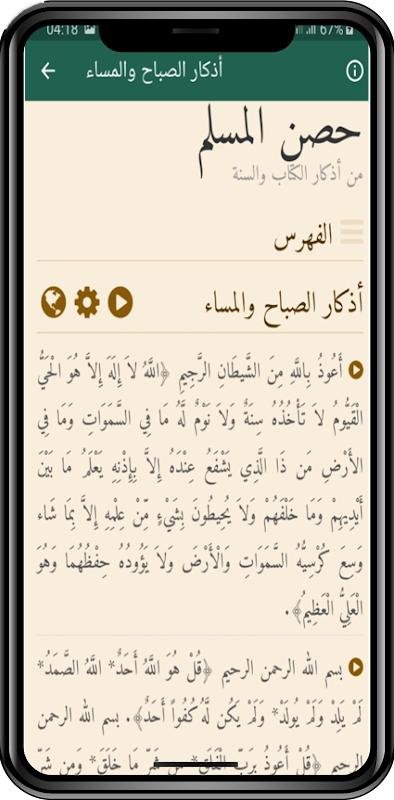 04:18
67%
أذكار الصباح والمساء
حصن المسلم
من أذكار الكتاب والسنة
الفهرس
أذكار الصباح والمساء
أَعُوذُ بِاللَّهِ مِنَ الشَّيطَانِ الرَّجِيمِ ﴿اللَّهُ لاَ إِلَهَ إِلاَّ هُوَ الْحَيُّ
الْقَيُّومُ لاَ تَأْخُذُهُ سِنَةٌ وَلاَ نَوْمٌ لَّهُ مَا فِي السَّمَوَاتِ وَمَا فِي
الأَرْضِ مَن ذَا الَّذِي يَشْفَعُ عِنْدَهُ إِلاَّ بِإِذْنِهِ يَعْلَمُ مَا بَيْنَ
أَيْدِيهِمْ وَمَا خَلْفَهُمْ وَلاَ يُحِيطُونَ بِشَيْءٍ مِّنْ عِلْمِهِ إِلاَّ بِمَا شَاء
وَسِعَ كُرْسِيُّهُ السَّمَوَاتِ وَالْأَرْضَ وَلاَ يَؤُودُهُ حِفْظُهُمَا وَهُوَ
الْعَلِيُّ الْعَظِيمُ﴾.
بسم الله الرحمن الرحيم ﴿قُلْ هُوَ اللَّهُ أَحَدٌ* اللَّهُ الصَّمَدُ*
لَمْ يَلِدْ وَلَمْ يُولَدْ* وَلَمْ يَكُن لَّهُ كُفُواً أَحَدٌ﴾. بسم الله الرحمن
الرحيم ﴿قُلْ أَعُوذُ بِرَبِّ الْفَلَقِ* مِن شَرِّ مَا خَلَقَ* وَمِن شَرِّ